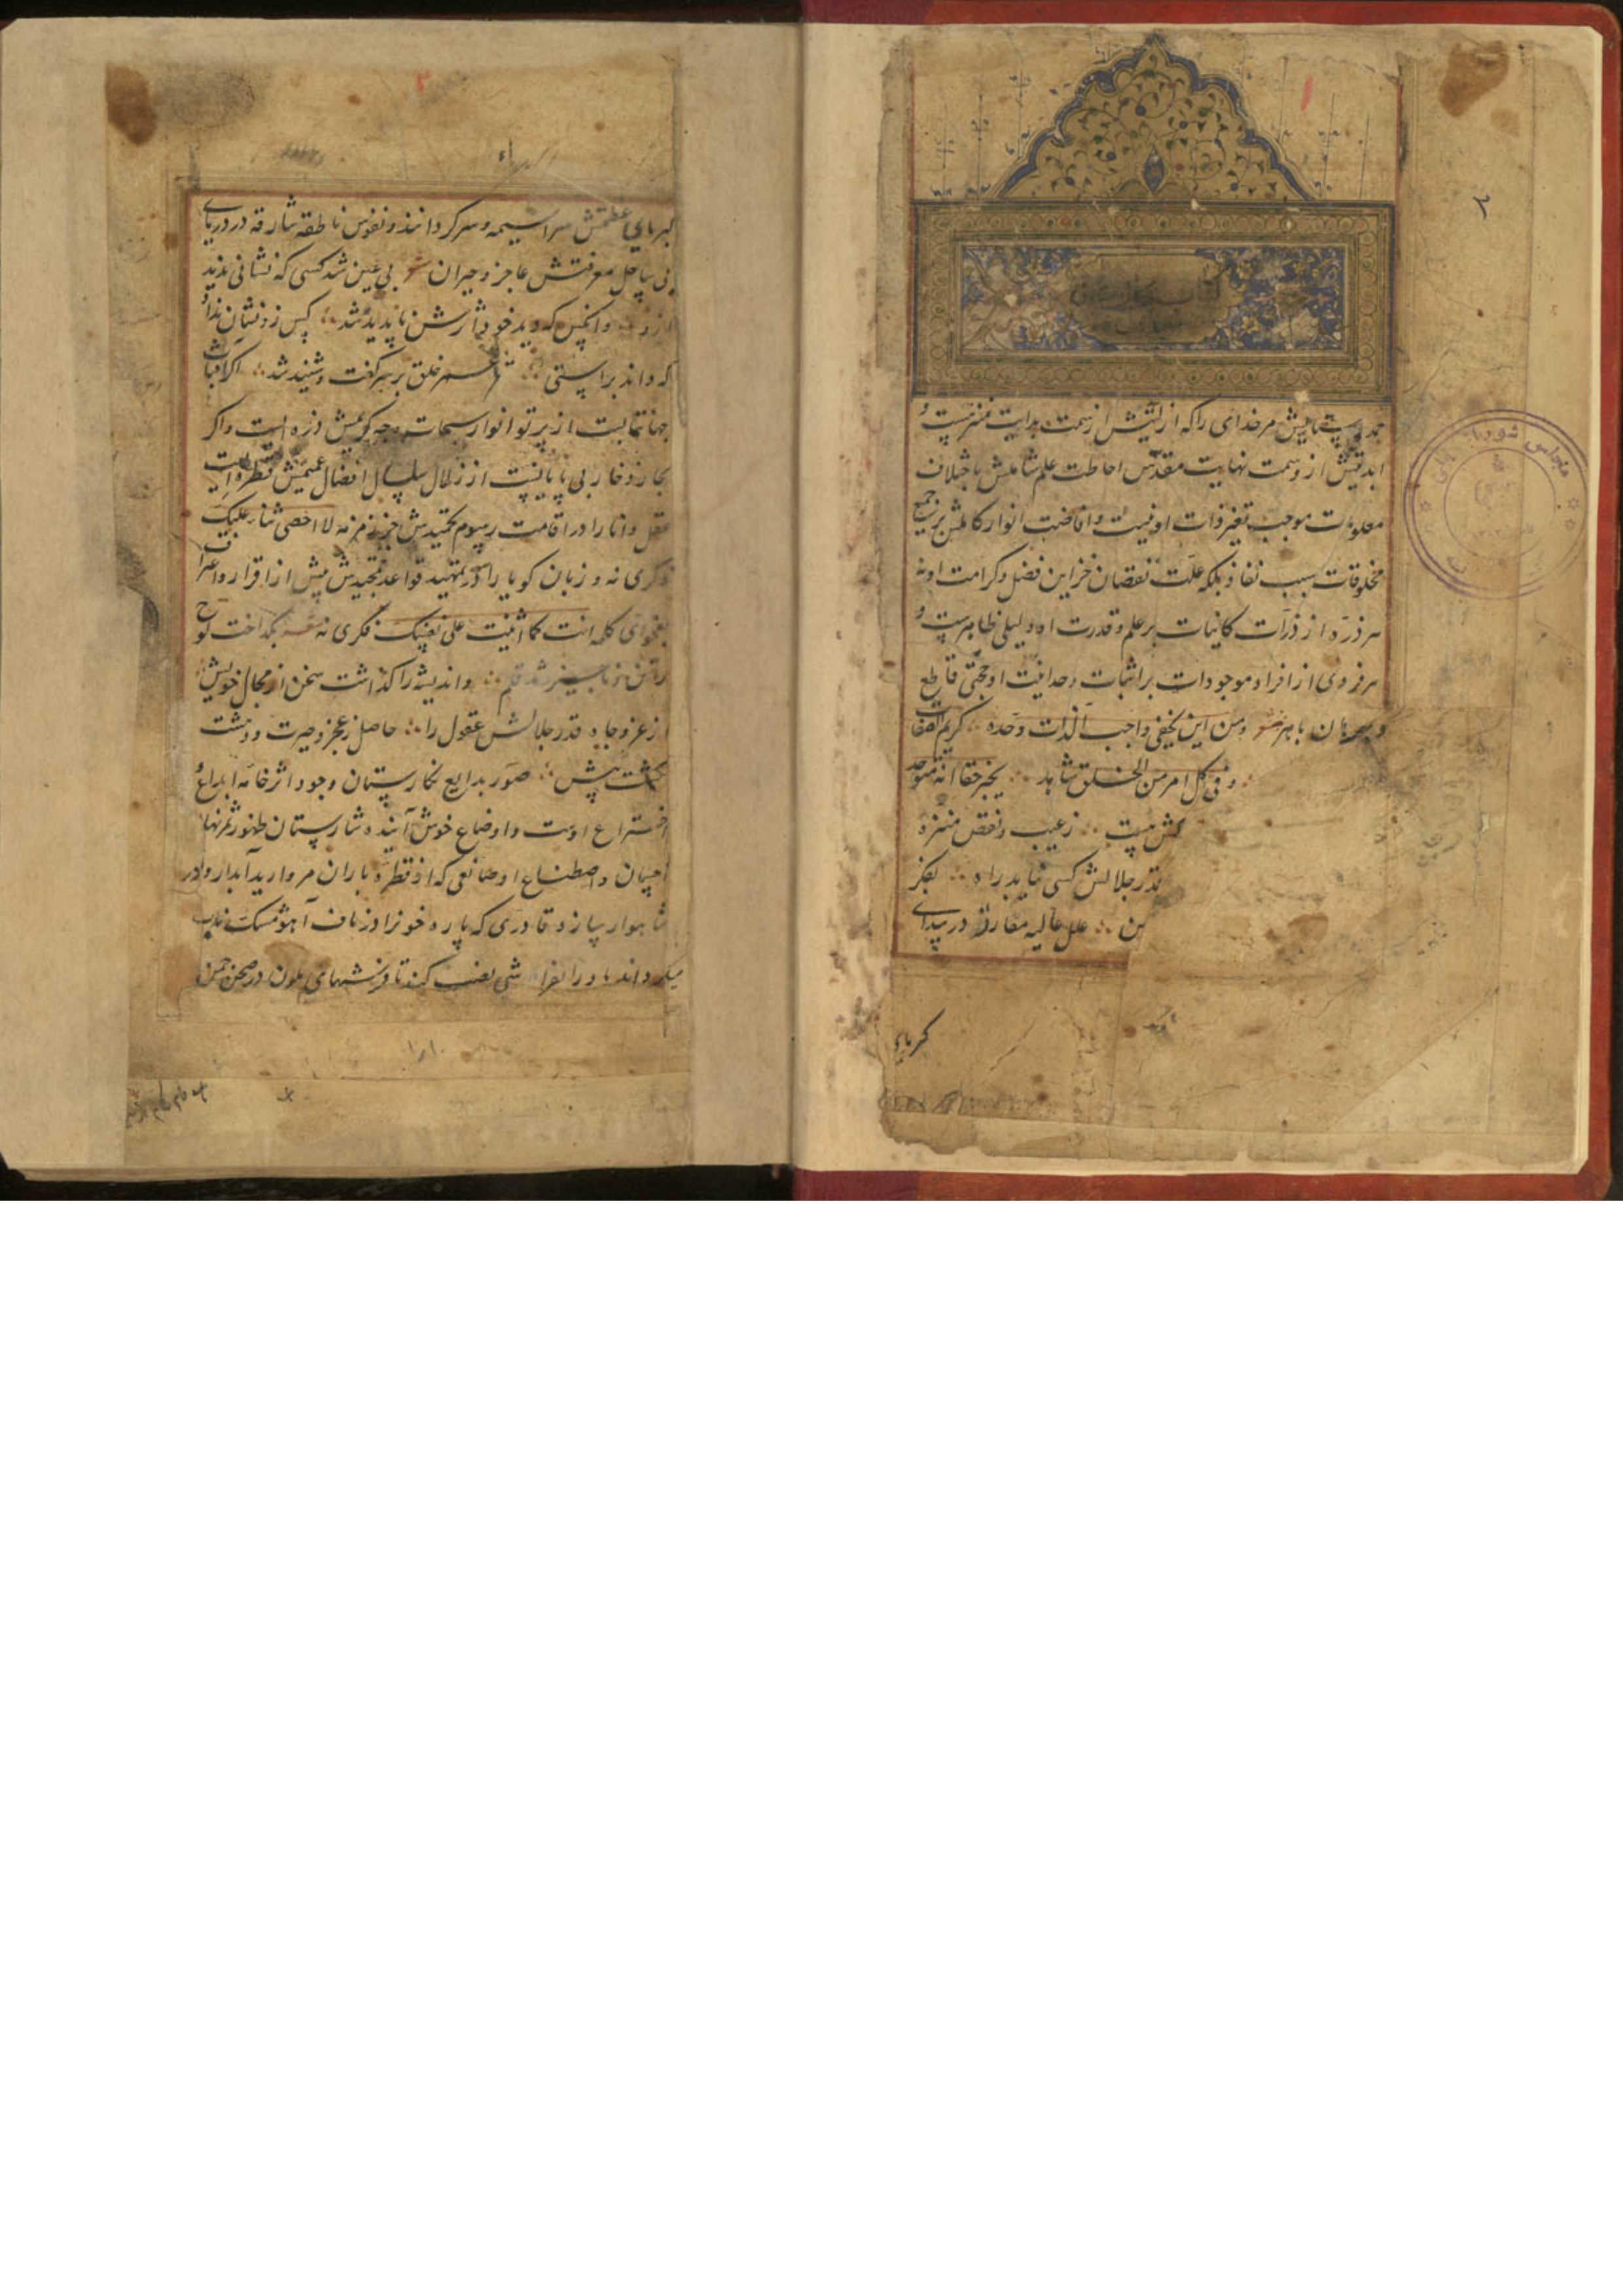 حمد و ستایش مر خدای را که ازلیتش از سمت بدایت منزهست و
ابدیتش از وصمت نهایت مقدس احاطت علم شاملش باختلاف
معلومات موجب تغیر ذات او نیست و افاضت انوار کاملش بر جمیع
مخلوقات سبب نفاذ بلکه علت نقصان خزاین فضل و کرامت او نه
هر ذره از ذرات کاینات بر علم و قدرت او دلیلی ظاهرست و
هر فردی از افراد موجودات بر اثبات وحدانیت او حجتی قاطع
و برهان باهر ومن این یخفی واجب الذات وحده کریم الصفات
وفی کل امر من الخلق شاهد یخبر حقا انه متوحد
زعیب و نقص منزه
قدر جلالش کسی نیابد راه بفکر
علل عالیه مفارقه در بیدای
کبریای
کبریای عظمتش سراسیمه و سرگردانند و نفوس ناطقه شارقه در دریای
بی ساحل معرفتش عاجز و حیران بی عین شد کسی که نشانی بدید
ازو وانکس که دید خود اثرش ناپدید شد کس زو نشان نداد
که داند براستی خلق بر سر گفت و شنید شد اگر
جهانتابست از پرتو انوار سبحات وجه کریمش ذره ایست و اگر
بحار زخار بی پایانست از زلال سلسال افضال عمیمش قطره ایست
عقل دانا را در اقامت رسوم تحمیدش جز زمزمه لا احصی ثناء علیک
ذکری نه و زبان گویا را در تمهید قواعد تمجیدش بیش از اقرار و اعتراف
بفحوای کلمه انت کما اثنیت علی نفسک فکری نه بگداخت لوح
قلم و اندیشه را گذاشت سخن از مجال خویش
از عز و جاه قدر جلالش عقول را حاصل ز عجز و حیرت و دهشت
گشت بیش صور بدایع نگارستان وجود اثر خامه ابداع و
اختراع اوست و اوضاع خوش آینده شارستان ظهور ثمر نهال
احسان و اصطناع او صانعی که از قطره باران مروارید آبدار و در
شاهوار سازد قادری که پاره خونرا در ناف آهو مشک ناب
میگرداند باد را بفراشی نصب کند تا فرشهای ملون در صحن چمن